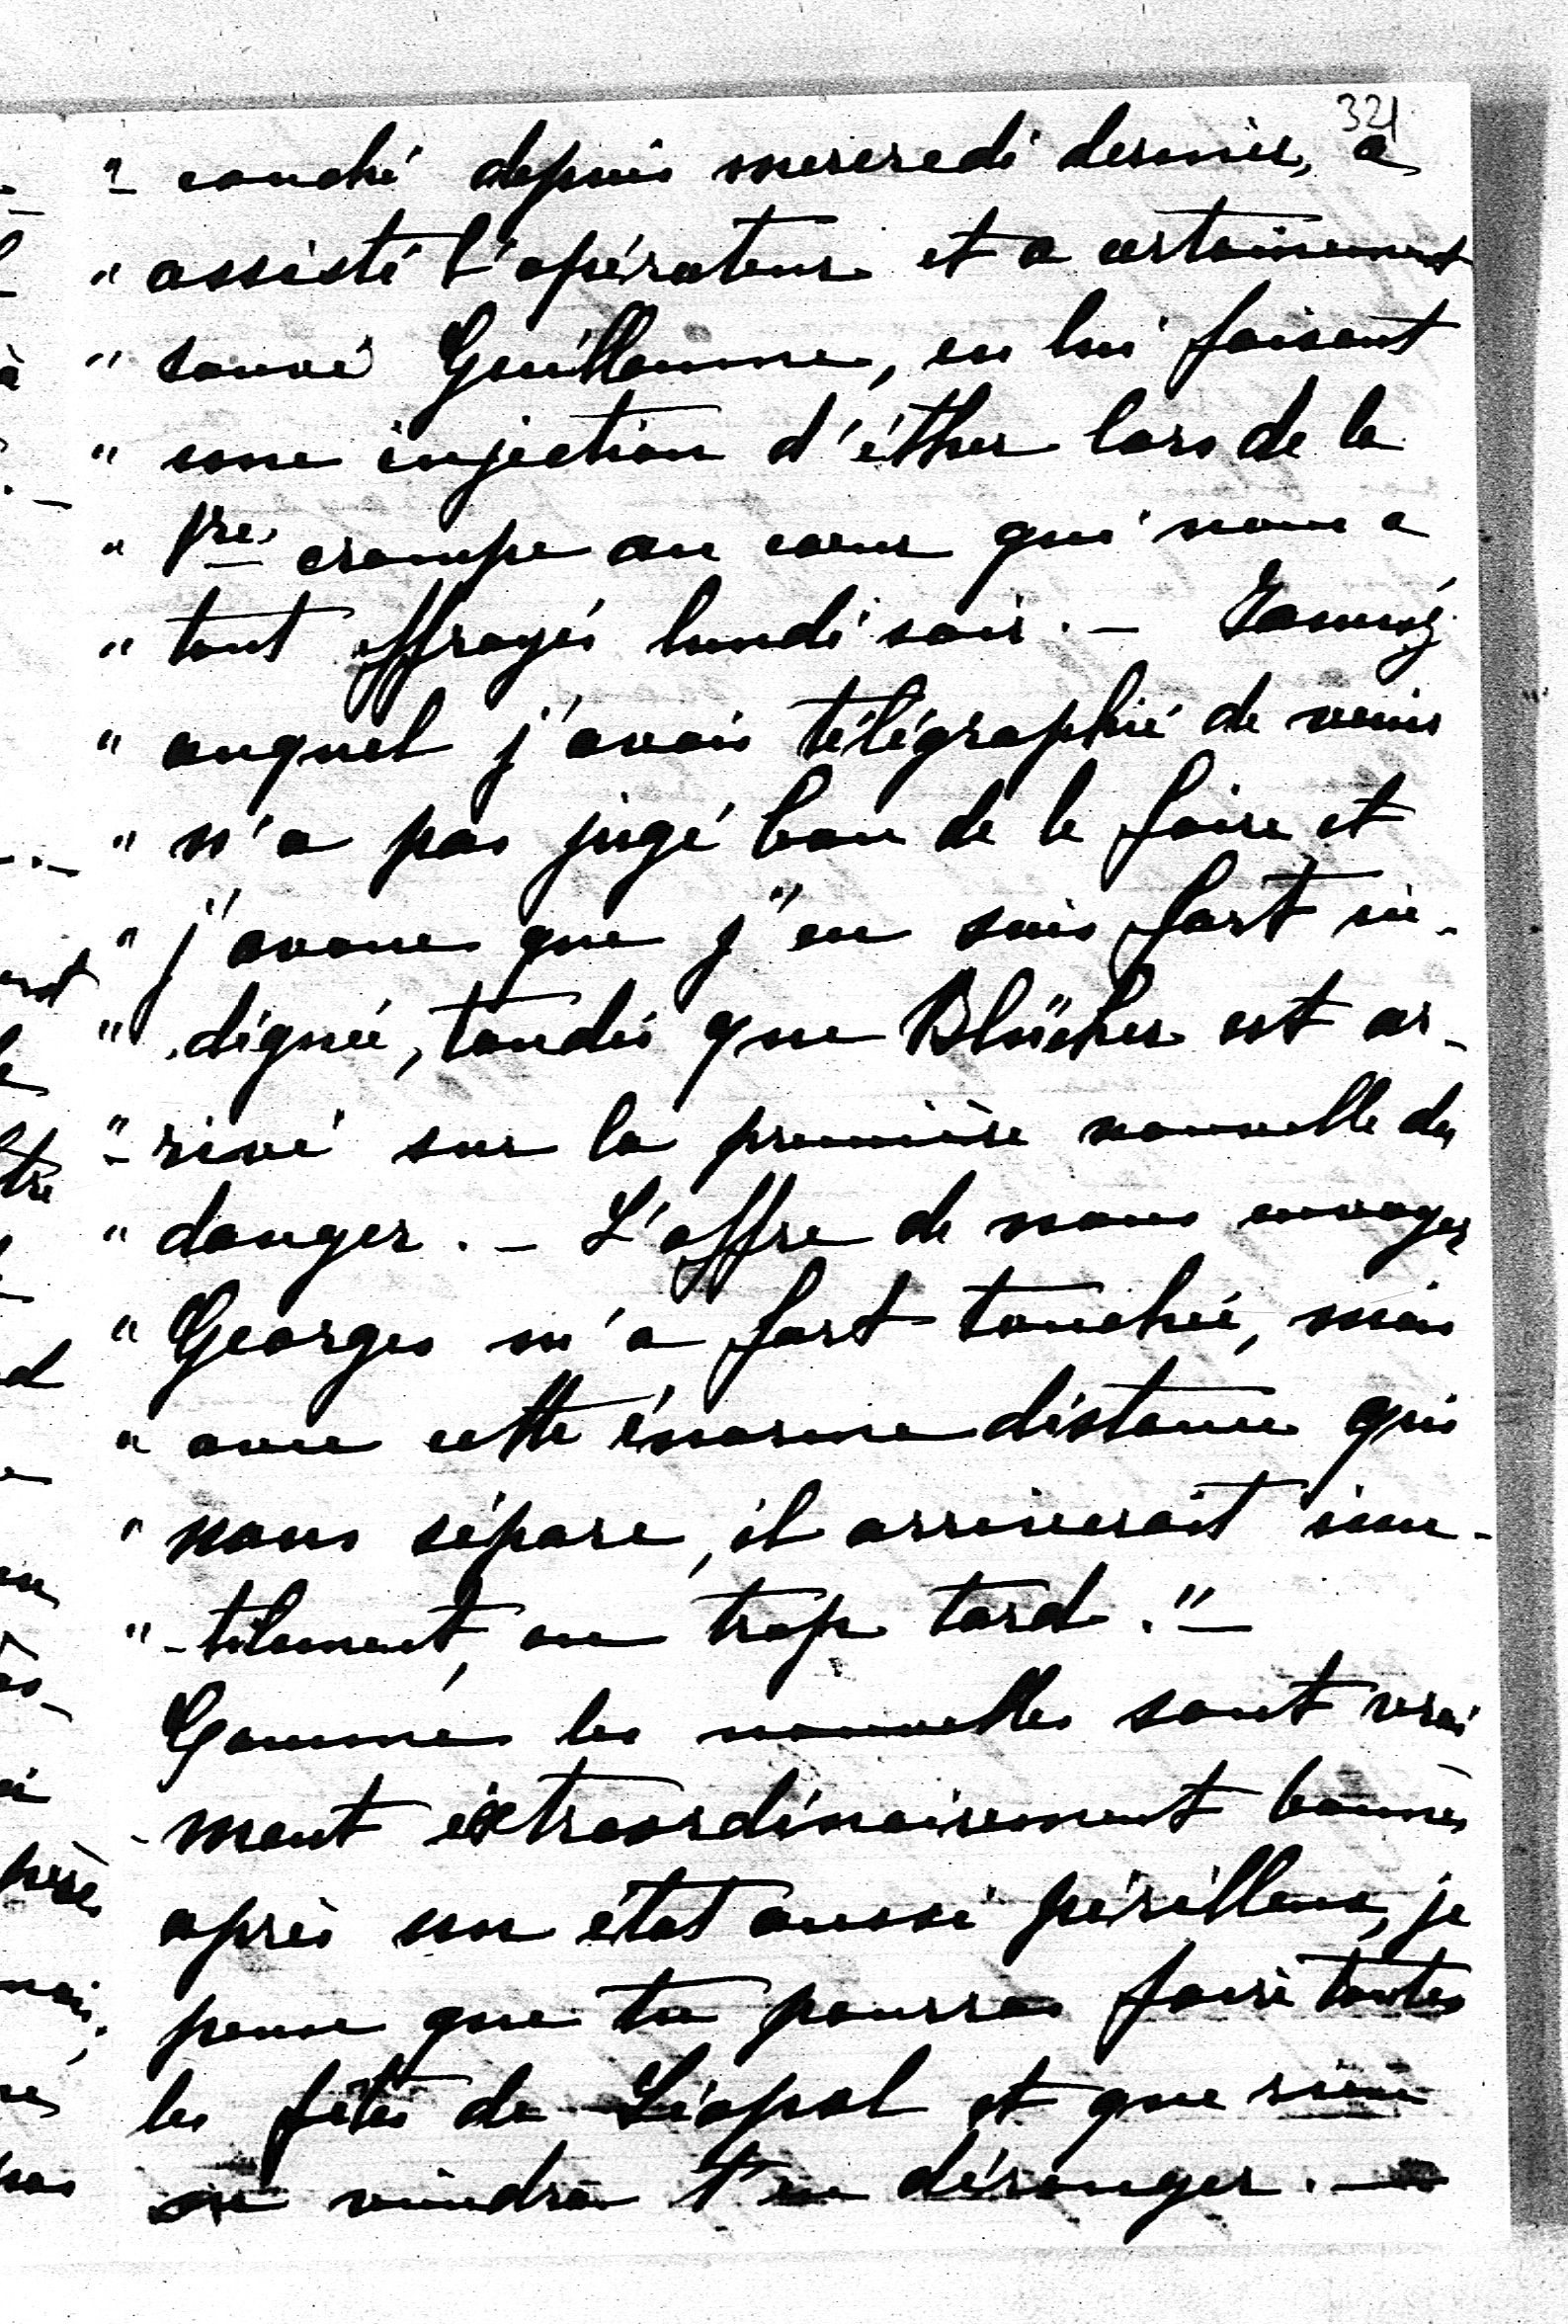 321
"- couché depuis mercredi dernier, a
" assisté l'opérateur et a certainement
" sauvé Guillaume, en lui faisant
" une injection d'éther lors de la
" 1re crampe au cœur qui nous a
" tant effrayés lundi soir. –
" auquel j'avais télégraphié de venir
" n'a pas jugé bon de le faire et
" j'avoue que j'en suis fort in-
" dignée, tandis que Blücher est ar-
"- rivé sur la première nouvelle du
" danger. – L'offre de nous envoyer
" Georges m'a fort touchée, mais
" avec cette énorme distance qui
" nous sépare, il arriverait inu-
"- tilement, ou trop tard." –
Comme les nouvelles sont vrai
- ment extraordinairement bonnes
après un état aussi périlleux, je
pense que tu pourras faire toutes
les fêtes de Léopol et que rien
ne viendra t'en déranger. –